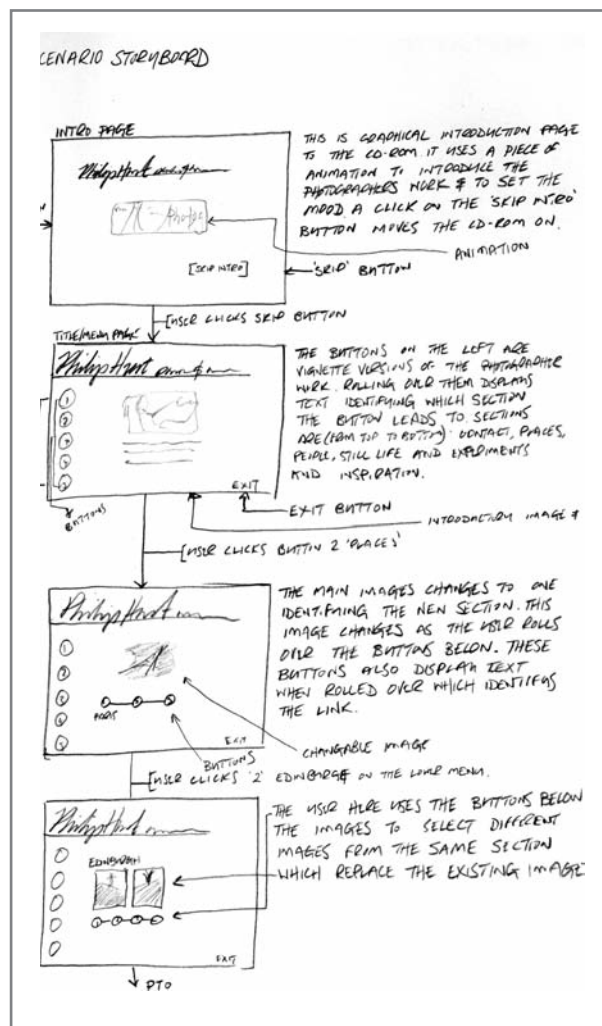 CENARIO STORYBOARD
INTRO PAGE
THIS IS GRAPHICAL INTRODUCTION PAGE
TO THE CD-ROM. IT USES A PIECE OF
ANIMATION TO INTRODUCE THE
PHOTOGRAPHERS WORK & TO SET THE
MOOD. A CLICK ON THE 'SKIP INTRO'
BUTTON MOVES THE CD-ROM ON.
Philip Hunt
ANIMATION
[SKIP INTRO]
'SKIP' BUTTON
[USER CLICKS SKIP BUTTON
TITLE/MENU PAGE
Philip Hunt
THE BUTTONS ON THE LEFT ARE
VIGNETTE VERSIONS OF THE PHOTOGRAPHER
WORK. ROLLING OVER THEM DISPLAYS
TEXT IDENTIFYING WHICH SECTION
THE BUTTON LEADS TO. SECTIONS
ARE (FROM TOP TO BOTTOM) CONTACT, PLACES,
PEOPLE, STILL LIFE AND EXPERIMENTS
AND INSPIRATION.
1
2
3
EXIT
BUTTONS
EXIT BUTTON
INTRODUCTORY IMAGE &
[USER CLICKS BUTTON 2 'PLACES'
Philip Hunt
THE MAIN IMAGES CHANGES TO ONE
IDENTIFYING THE NEW SECTION. THIS
IMAGE CHANGES AS THE USER ROLLS
OVER THE BUTTONS BELOW. THESE
BUTTONS ALSO DISPLAY TEXT
WHEN ROLLED OVER WHICH IDENTIFIES
THE LINK.
1
2
PARIS
EXIT
CHANGABLE IMAGE
BUTTONS
[USER CLICKS '2' EDINBURGH ON THE LOWER MENU.
Philip Hunt
THE USER HERE USES THE BUTTONS BELOW
THE IMAGES TO SELECT DIFFERENT
IMAGES FROM THE SAME SECTION
WHICH REPLACE THE EXISTING IMAGE
EDINBURGH
EXIT
PTO